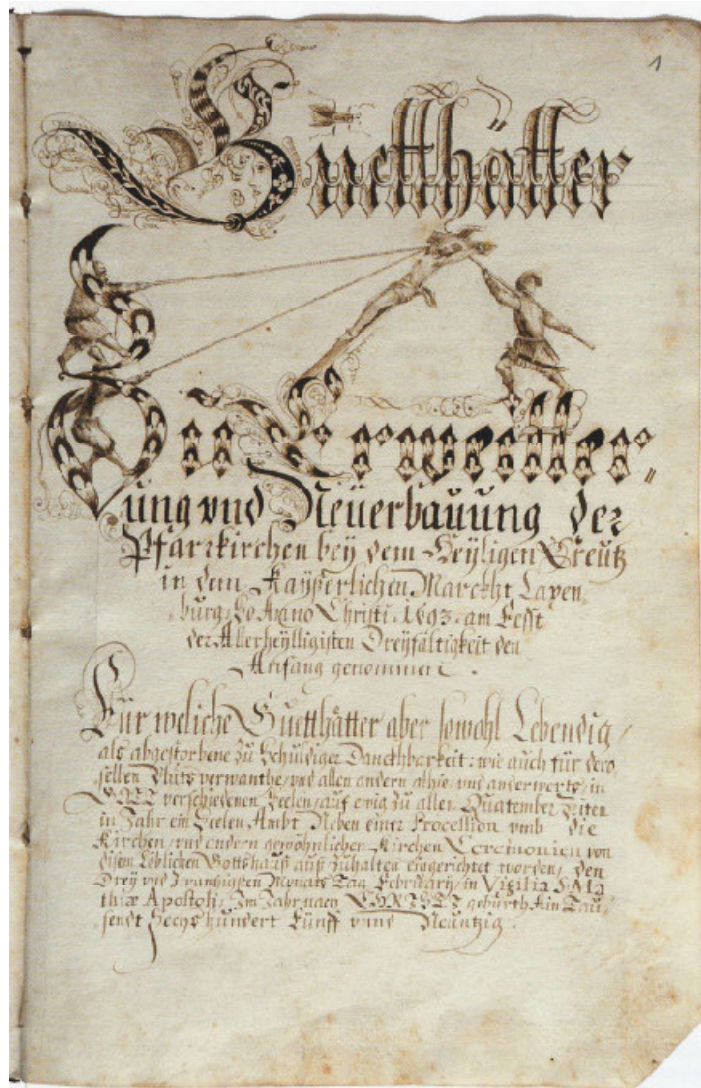 1
Guetthätter
Zu Erweitter„
ung vnd Neüerbauung der
Pfarrkirchen bey dem Heyligen Creutz
in dem Kayßerlichen Marckht Laxen,
burg, so Anno Christi. 1693. am Fesst
der Allerheylligisten Dreyfaltigkeit den
Anfang genommen.
Für weliche Guetthätter aber sowohl Lebendig /
als abgestorbene zu Schuldiger Danckhbarkeit: wie auch für dero
sellen Bluts verwanthe, vnd allen andern alhie, vnd anderwerts, in
GOTT verschiedenen Seelen, auf ewig zu allen Quatember Zeiten
in Jahr ein Seelen Ambt Neben einer Procession vmb die
Kirchen, vnd andern gewöhnlichen Kirchen Ceremonien von
disem Löblichen Gottshauß auß zuhalten eingerichtet worden, den
Drey vnd Zwanzigsten Monats Tag Februarij, in Vigilia S: Ma
thiæ Apostoli, Im Jahr nach CHRISTI geburth Ain Tau,
sendt Sechs hundert Fünff vnnd Neuntzig.